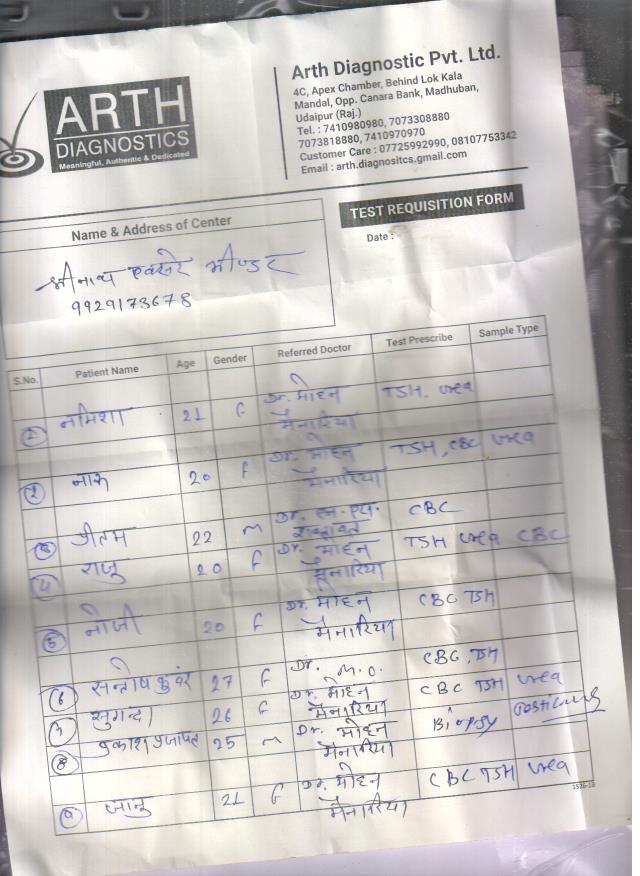 ARTH
DIAGNOSTICS
Meaningful, Authentic & Dedicated
Arth Diagnostic Pvt. Ltd.
4C, Apex Chamber, Behind Lok Kala
Mandal, Opp. Canara Bank, Madhuban,
Udaipur (Raj.)
Tel. : 7410980980, 7073308880
7073818880, 7410970970
Customer Care : 07725992990, 08107753342
Email : arth.diagnositcs.gmail.com
Name & Address of Center
TEST REQUISITION FORM
Date :
श्रीनाथ एक्सरे भीण्डर
9929173678
S.No. Patient Name Age Gender Referred Doctor Test Prescribe Sample Type
1 नमिशा 21 F Dr. मोहन मैनारिया TSH. urea
2 नारु 20 F Dr. मोहन मैनारिया TSH, CBC urea
3 प्रीतम 22 m Dr. एन. एस. शक्तावत CBC
4 राजु 20 F Dr. मोहन मैनारिया TSH urea CBC
5 नोजी 20 F Dr. मोहन मैनारिया CBC TSH
6 सन्तोष कुवंर 27 F Dr. M.O. CBC, TSH
7 सुगन्दा 26 F Dr. मोहन मैनारिया CBC TSH urea
8 प्रकाश प्रजापत 25 m Dr. मोहन मैनारिया Biopsy
9 जानु 21 F Dr. मोहन मैनारिया CBC TSH urea
1526-18